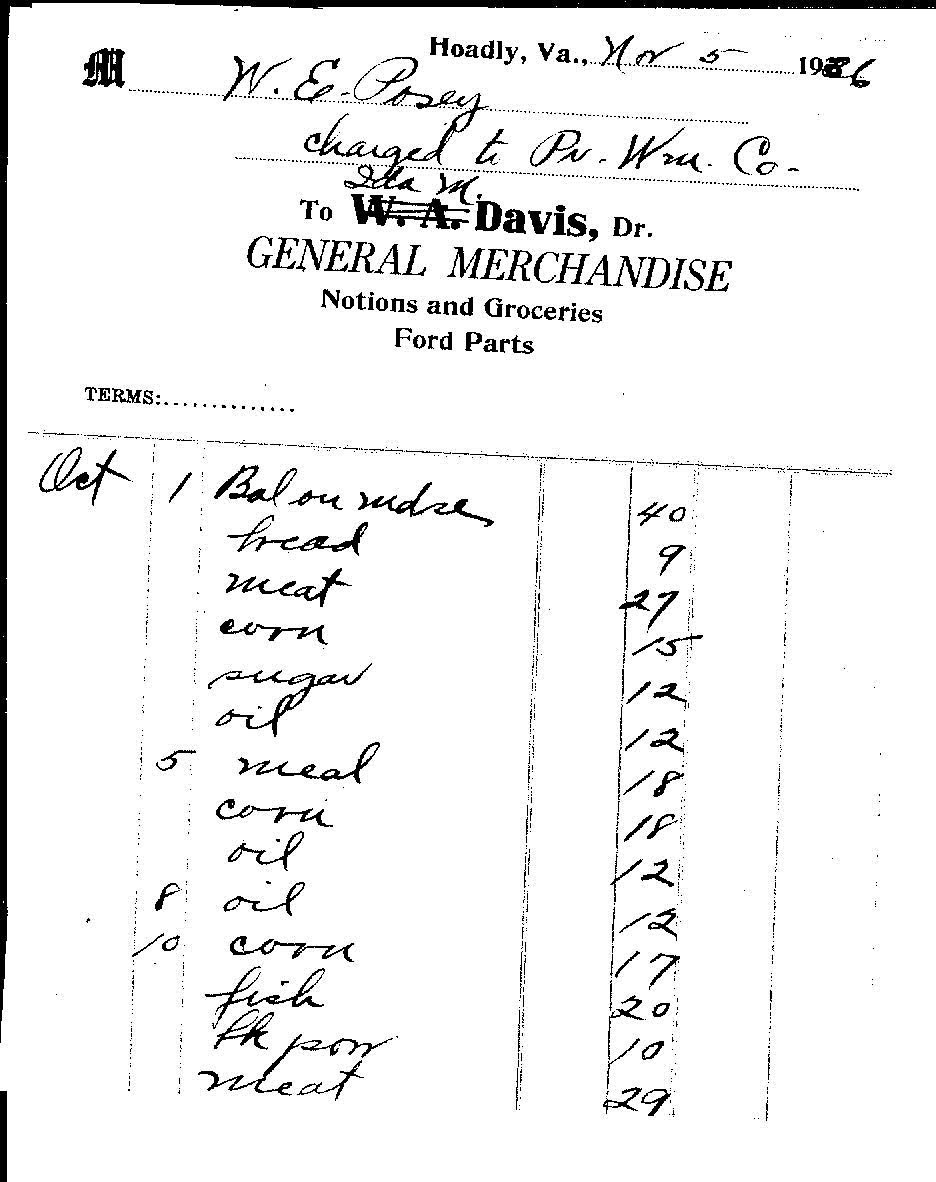 Hoadly, Va., Nov 5 1936
M W. E. Posey
charged to Pr. Wm. Co.
Ida M.
To W. A. Davis, Dr.
GENERAL MERCHANDISE
Notions and Groceries
Ford Parts
TERMS:..............
Oct 1 Bal on mdse 40
bread 9
meat 27
corn 15
sugar 12
oil 12
5 meal 18
corn 18
oil 12
8 oil 12
10 corn 17
fish 20
bk pow 10
meat 29